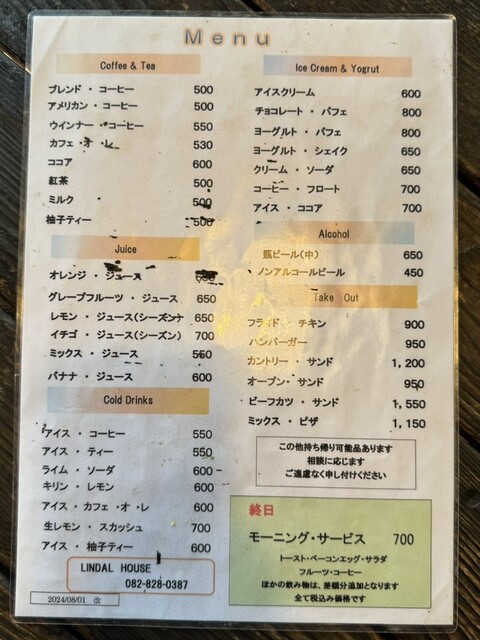 Menu
Coffee & Tea
ブレンド・コーヒー 500
アメリカン・コーヒー 500
ウインナー・コーヒー 550
カフェ・オ・レ 530
ココア 600
紅茶 500
ミルク 500
柚子ティー 500
Juice
オレンジ・ジュース
グレープフルーツ・ジュース 650
レモン・ジュース(シーズン) 650
イチゴ・ジュース(シーズン) 700
ミックス・ジュース 550
バナナ・ジュース 600
Cold Drinks
アイス・コーヒー 550
アイス・ティー 550
ライム・ソーダ 600
キリン・レモン 600
アイス・カフェ・オ・レ 600
生レモン・スカッシュ 700
アイス・柚子ティー 600
LINDAL HOUSE
082-828-0387
2024/08/01 改
Ice Cream & Yogrut
アイスクリーム 600
チョコレート・パフェ 800
ヨーグルト・パフェ 800
ヨーグルト・シェイク 650
クリーム・ソーダ 650
コーヒー・フロート 700
アイス・ココア 700
Alcohol
瓶ビール(中) 650
ノンアルコールビール 450
Take Out
フライド・チキン 900
ハンバーガー 950
カントリー・サンド 1,200
オープン・サンド 950
ビーフカツ・サンド 1,550
ミックス・ピザ 1,150
この他持ち帰り可能品あります
相談に応じます
ご遠慮なく申し付けください
終日
モーニング・サービス 700
トースト・ベーコンエッグ・サラダ
フルーツ・コーヒー
ほかの飲み物は、差額分追加となります
全て税込み価格です